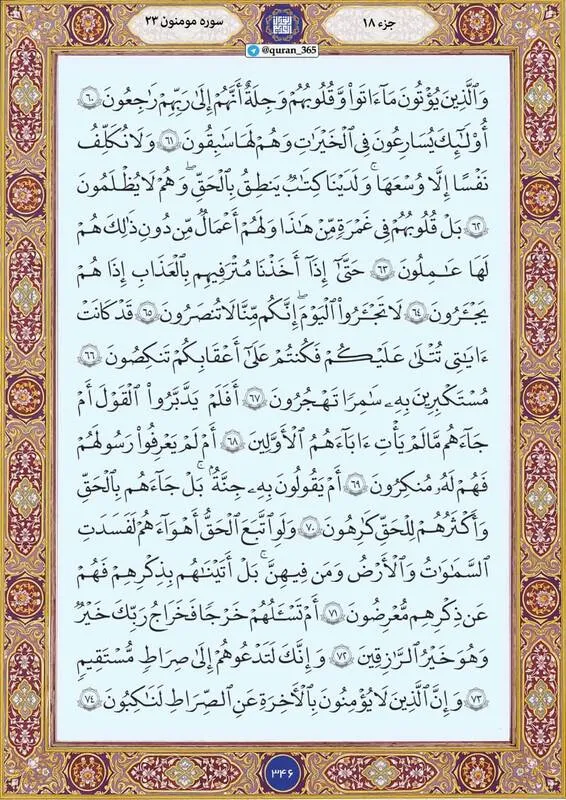 جزء ۱۸
سوره مومنون ۲۳
@quran_365
وَالَّذِينَ يُؤْتُونَ مَا ءَاتَوا۟ وَّقُلُوبُهُمْ وَجِلَةٌ أَنَّهُمْ إِلَىٰ رَبِّهِمْ رَاجِعُونَ ۶۰
أُو۟لَـٰٓئِكَ يُسَارِعُونَ فِى الْخَيْرَاتِ وَهُمْ لَهَا سَابِقُونَ ۶۱ وَلَا نُكَلِّفُ
نَفْسًا إِلَّا وُسْعَهَا ۚ وَلَدَيْنَا كِتَابٌ يَنطِقُ بِالْحَقِّ ۖ وَهُمْ لَا يُظْلَمُونَ
۶۲ بَلْ قُلُوبُهُمْ فِى غَمْرَةٍ مِّنْ هَـٰذَا وَلَهُمْ أَعْمَالٌ مِّن دُونِ ذَٰلِكَ هُمْ
لَهَا عَـٰمِلُونَ ۶۳ حَتَّىٰٓ إِذَآ أَخَذْنَا مُتْرَفِيهِم بِالْعَذَابِ إِذَا هُمْ
يَجْـَٔرُونَ ۶۴ لَا تَجْـَٔرُوا۟ الْيَوْمَ ۖ إِنَّكُم مِّنَّا لَا تُنصَرُونَ ۶۵ قَدْ كَانَتْ
ءَايَـٰتِى تُتْلَىٰ عَلَيْكُمْ فَكُنتُمْ عَلَىٰٓ أَعْقَابِكُمْ تَنكِصُونَ ۶۶
مُسْتَكْبِرِينَ بِهِۦ سَـٰمِرًا تَهْجُرُونَ ۶۷ أَفَلَمْ يَدَّبَّرُوا۟ الْقَوْلَ أَمْ
جَآءَهُم مَّا لَمْ يَأْتِ ءَابَآءَهُمُ الْأَوَّلِينَ ۶۸ أَمْ لَمْ يَعْرِفُوا۟ رَسُولَهُمْ
فَهُمْ لَهُۥ مُنكِرُونَ ۶۹ أَمْ يَقُولُونَ بِهِۦ جِنَّةٌۢ ۚ بَلْ جَآءَهُم بِالْحَقِّ
وَأَكْثَرُهُمْ لِلْحَقِّ كَـٰرِهُونَ ۷۰ وَلَوِ اتَّبَعَ الْحَقُّ أَهْوَآءَهُمْ لَفَسَدَتِ
السَّمَـٰوَٰتُ وَالْأَرْضُ وَمَن فِيهِنَّ ۚ بَلْ أَتَيْنَـٰهُم بِذِكْرِهِمْ فَهُمْ
عَن ذِكْرِهِم مُّعْرِضُونَ ۷۱ أَمْ تَسْـَٔلُهُمْ خَرْجًا فَخَرَاجُ رَبِّكَ خَيْرٌ ۖ
وَهُوَ خَيْرُ الرَّازِقِينَ ۷۲ وَإِنَّكَ لَتَدْعُوهُمْ إِلَىٰ صِرَاطٍ مُّسْتَقِيمٍ
۷۳ وَإِنَّ الَّذِينَ لَا يُؤْمِنُونَ بِالْـَٔاخِرَةِ عَنِ الصِّرَاطِ لَنَـٰكِبُونَ ۷۴
۳۴۶